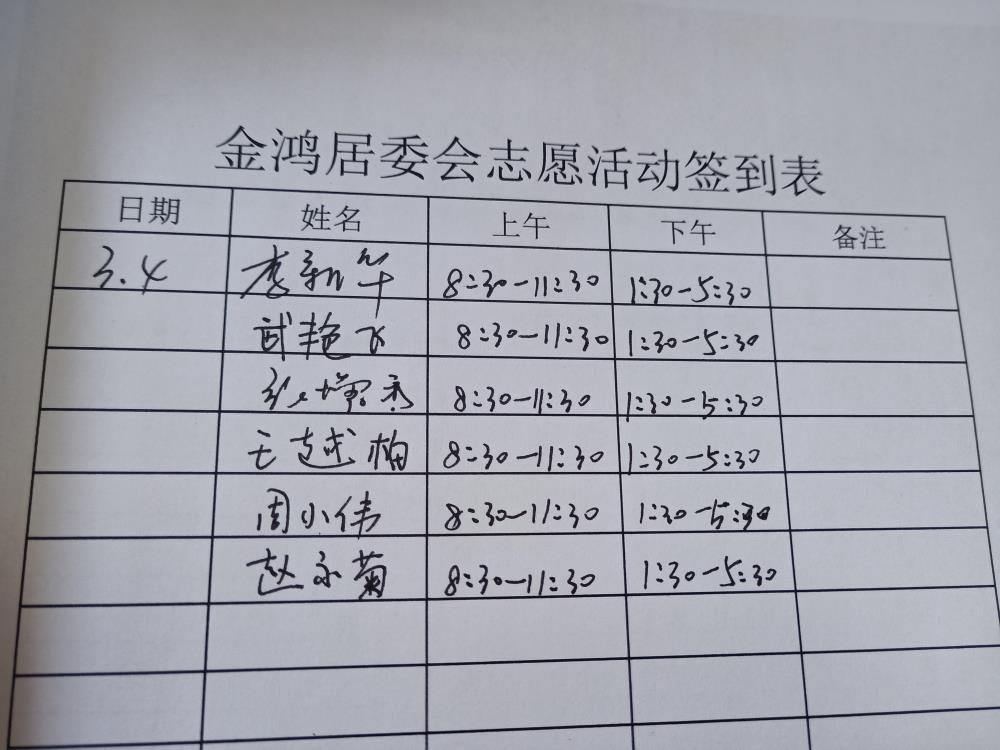 金鸿居委会志愿活动签到表
日期 姓名 上午 下午 备注
3.4 李新华 8:30-11:30 1:30-5:30
武艳飞 8:30-11:30 1:30-5:30
张增秀 8:30-11:30 1:30-5:30
王越梅 8:30-11:30 1:30-5:30
周小伟 8:30-11:30 1:30-5:30
赵永菊 8:30-11:30 1:30-5:30